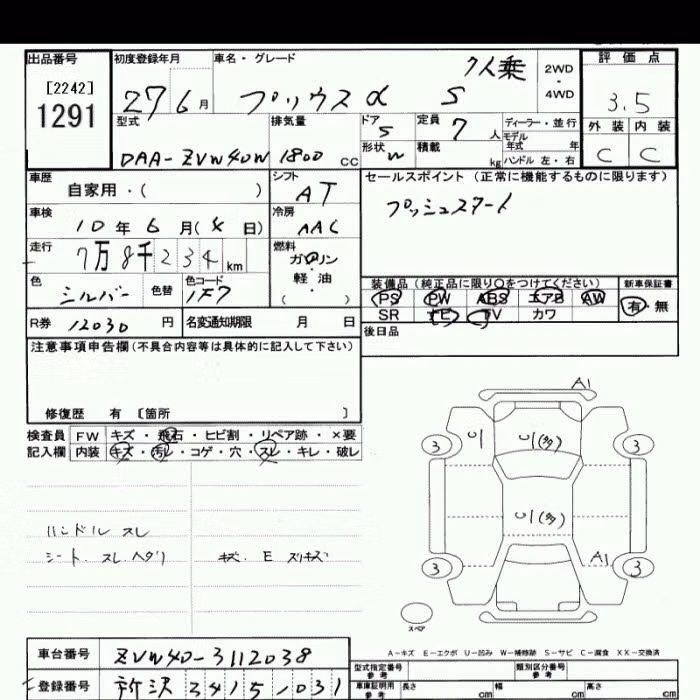 出品番号 初度登録年月 車名・グレード 7人乗 2WD ・ 4WD 評価点
[2242]
1291
27 6月 プリウスα S 3.5
型式 排気量 ドア 5 定員 7人 ディーラー・並行 外装 内装
モデル年式 年
DAA-ZVW40W 1800cc 形状 W 積載 kg ハンドル 左・右 C C
車歴 自家用・( ) シフト AT セールスポイント(正常に機能するものに限ります)
車検 10年6月(4日) 冷房 AAC プッシュスタート
走行 7万8千234km 燃料 ガソリン・軽油・( )
色 シルバー 色替 色コード 1F7 装備品(純正品に限り○をつけてください) 新車保証書
PS PW ABS エアB AW 有・無
SR TV カワ
R券 12030円 名変通知期限 月 日 後日品
注意事項申告欄(不具合内容等は具体的に記入して下さい)
修復歴 有 〔箇所 〕
検査員 FW キズ・飛石・ヒビ割・リペア跡・×要
記入欄 内装 キズ・汚レ・コゲ・穴・スレ・キレ・破レ
ハンドル スレ
シート スレ ヘタリ キズ. E スリキズ
A1
3 U1 U1(多) 3
U1(多)
3 A1 3
スペア
A－キズ E－エクボ U－凹み W－補修跡 S－サビ C－腐食 XX－交換済
車台番号 ZVW40-3112038
型式指定番号 参考 類別区分番号 参考
登録番号 所沢 341 5 1031
車庫証明用 参考 長さ cm 幅 cm 高さ cm